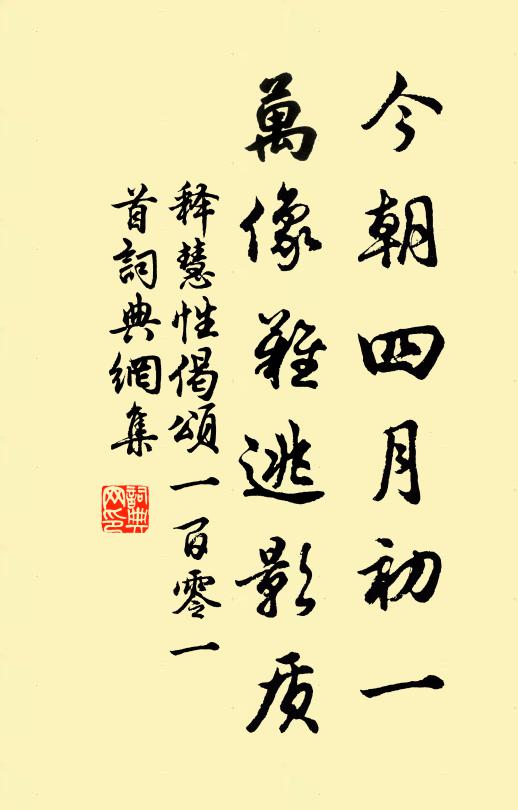 今朝四月初一
萬像難逃影质
释慧性偈頌一百零一
首詞典網集
詞典网印